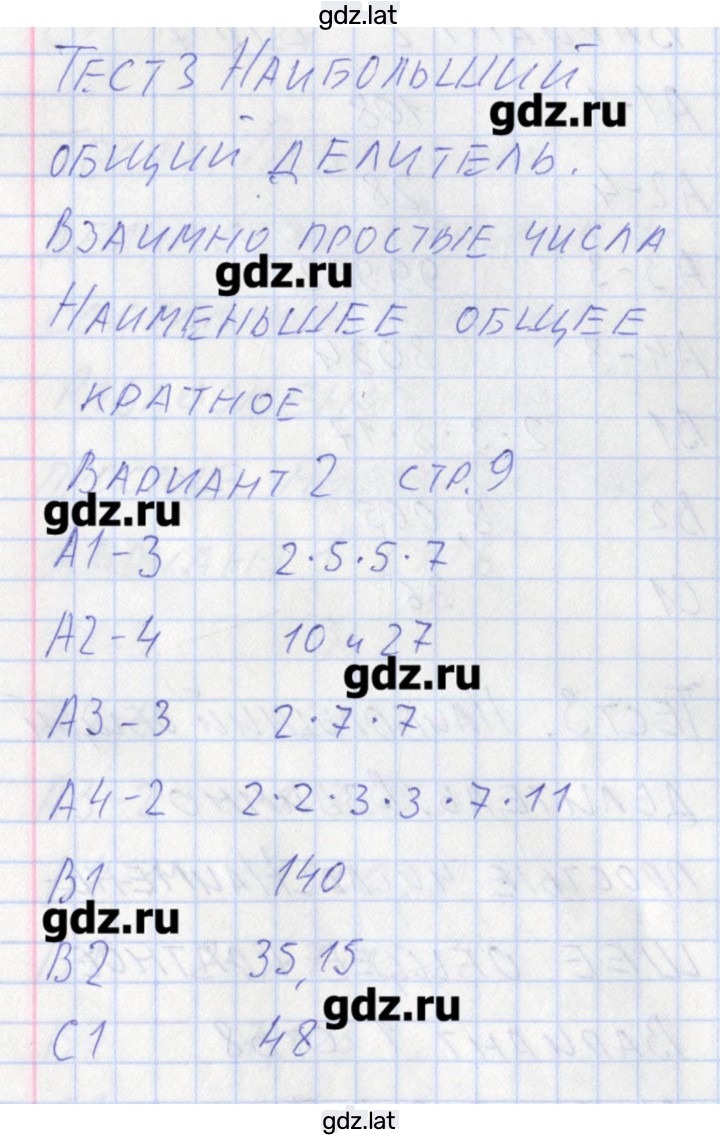 gdz.lat
ТЕСТ 3 НАИБОЛЬШИЙ
gdz.ru
ОБЩИЙ ДЕЛИТЕЛЬ.
ВЗАИМНО ПРОСТЫЕ ЧИСЛА
gdz.ru
НАИМЕНЬШЕЕ ОБЩЕЕ
КРАТНОЕ
ВАРИАНТ 2 СТР. 9
gdz.ru
А1-3 2·5·5·7
А2-4 10 и 27
gdz.ru
А3-3 2·7·7
А4-2 2·2·3·3·7·11
В1 140
gdz.ru
В2 35,15
gdz.ru
С1 48
gdz.lat